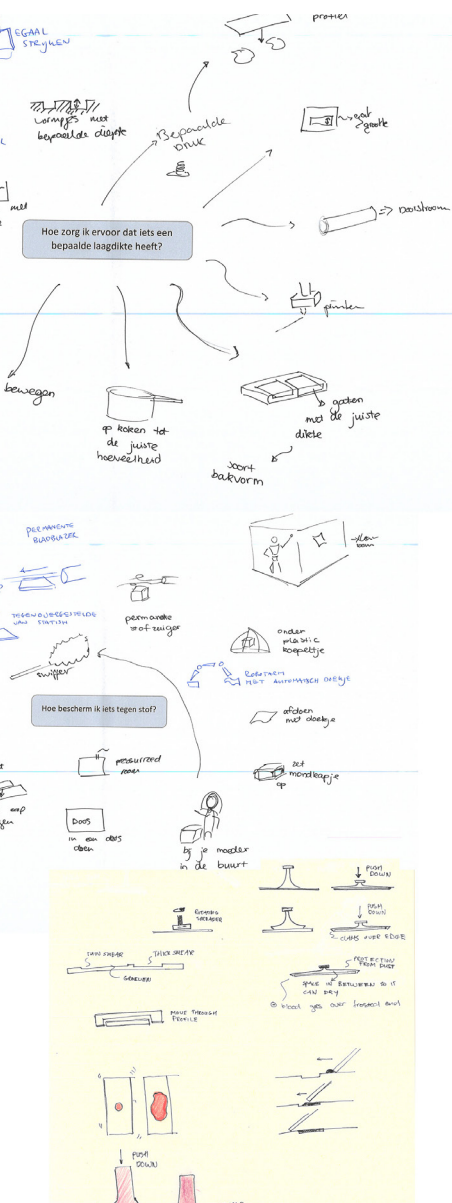 EGAAL
STRIJKEN
profiel
vormpjes met
bepaalde diepte
Bepaalde
Druk
gat
grootte
met
Hoe zorg ik ervoor dat iets een
bepaalde laagdikte heeft?
Doorstroom
printen
bewegen
op koken tot
de juiste
hoeveelheid
gieten
met de juiste
dikte
soort
bakvorm
PERMANENTE
BLADBLAZER
permanente
stofzuiger
TEGENOVERGESTELDE
VAN STATISH
swiffer
onder
plastic
koepeltje
ROBOTARM
MET AUTOMATISCH DOEKJE
Hoe bescherm ik iets tegen stof?
afdoen
met doekje
pressurized
room
zet
mondkapje
op
DOOS
in een doos
doen
bij je moeder
in de buurt
PUSH
DOWN
PUSH
DOWN
CLAMS OVER EDGE
THIN SMEAR
THICK SMEAR
PROTECTION
FROM DUST
SPACE IN BETWEEN SO IT
CAN DRY
blood goes over frosted end
MOVE THROUGH
PROFILE
PUSH
DOWN